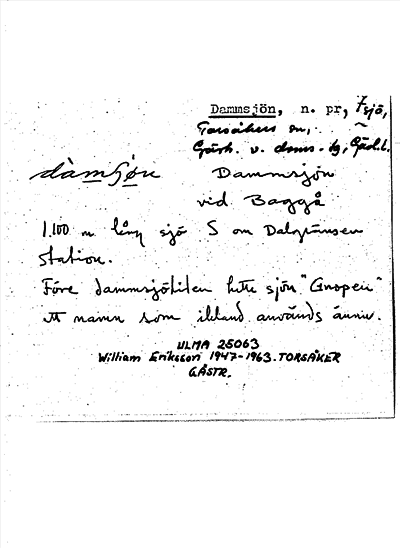 Dammsjön, n. pr, sjö,
Torsåkers sn,
Gästr. v. doms. tg, Gävl.l.
dàmsjøn Dammsjön
vid Baggå
1.100 m lång sjö S om Dalgränsen
station.
Före dammsjötiden hette sjön "Gnopen"
ett namn som ibland används ännu.
ULMA 25063
William Eriksson 1947-1963. TORSÅKER
GÄSTR.